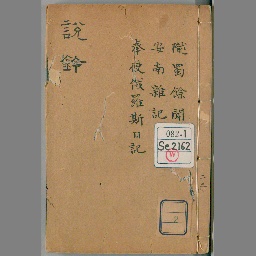 說鈴
隴蜀餘聞
安南雜記
奉使俄羅斯日記
082-1
Se2162
W
二